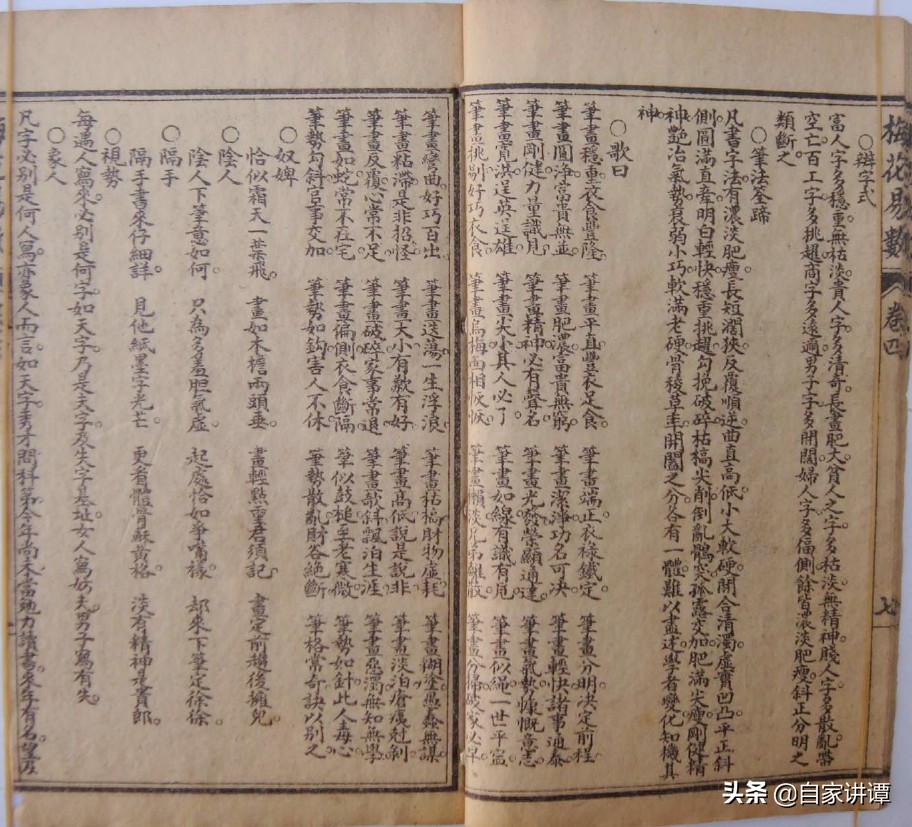 梅花易數 卷四
○辨字式
富人字多穩重無枯淡貴人字多清奇長畫肥大貧人之字多枯淡無精神賤人字多散亂帶
空亡百工字多挑趯商字多遠邇男子字多開闊婦人字多偪側餘皆濃淡肥瘦斜正分明之
類斷之
○筆法筌蹄
凡書字法有濃淡肥瘦長短濶狹反覆順逆曲直高低小大軟硬開合清濁虛實凹凸平正斜
側圓滿直牽明白輕快穩重挑趯勾挽破碎枯槁尖削倒亂鶻突孤露交加肥滿尖瘦剛健精
神艷冶氣勢衰弱小巧軟滿老硬骨稜草率開闔之分各有一體難以盡述學者變化知機具
神
○歌曰
筆畫穩重衣食豐隆 筆畫平直豐衣足食 筆畫端正衣祿鐵定 筆畫分明決定前程
筆畫圓淨富貴無並 筆畫肥濃富貴無窮 筆畫潔淨功名可決 筆畫輕快諸事通泰
筆畫剛健力量識見 筆畫精神必有聲名 筆畫光發榮顯通達 筆畫氣勢慷慨意志
筆畫寬洪逞英逞雄 筆畫尖小其人必了 筆畫如線有識有見 筆畫似繩一世平寧
筆畫挑剔好巧衣食 筆畫烏梅面相恢恢 筆畫懶淡兄弟離散 筆畫分偏破家必早
筆畫彎曲好巧百出 筆畫迭蕩一生浮浪 筆畫枯槁財物虛耗 筆畫糊塗愚蠢無謀
筆畫粘滯是非招怪 筆畫大小有歉有好 筆畫高低說是說非 筆畫淡泊瘡痍尅剝
筆畫反覆心常不足 筆畫破碎家事常退 筆畫欹斜飄泊生涯 筆畫惡濁無知無學
筆畫如蛇常不在宅 筆畫偏側衣食斷隔 筆似鼓槌至老寒微 筆勢如針此人毒心
筆勢勾斜官事交加 筆勢如鈎害人不休 筆勢散亂財谷絕斷 筆格常奇訣以別之
○奴婢
恰似霜天一葉飛 畫如木檐兩頭垂 畫輕點重君須記 畫定前趨後擁兒
○陰人
陰人下筆意如何 只為多羞胆氣虛 起處恰如爭嘴樣 却來下筆定徐徐
○隔手
隔手書來仔細詳 見他紙墨字光亡 更看體骨蘇黃格 淡有精神是貴郎
○視勢
每過人寫來必別是何字如天字乃是夫字及生字基址女人寫妨夫男子寫有失
○象人
凡字必別是何人寫亦象人而言如天字秀才問科第今年尚未當勉力讀書來年有名望及